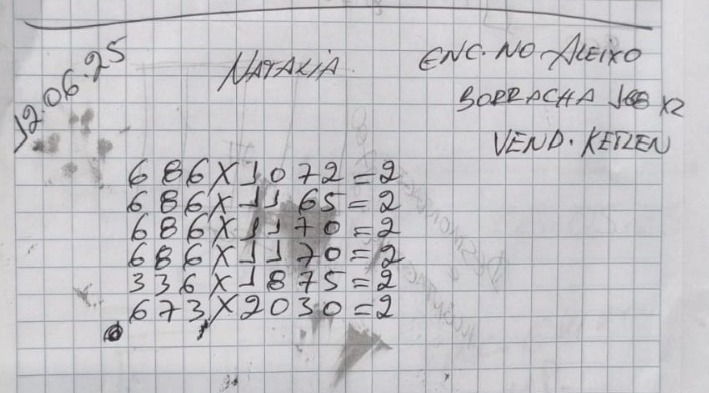 12.06.25
NATALIA
ENC. NO ALEIXO
BORRACHA 168 X2
VEND. KETLEN
686X1072=2
686X1165=2
686X1170=2
686X1170=2
336X1875=2
673X2030=2